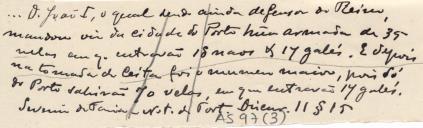 ... D. João I, o qual sendo ainda defensor do Reino,
mandou vir da cidade do Porto hua armada de 35
velas em q. entravão 18 naos & 17 galés. E depois
na tomada de Ceita foi o numero maior, pois só
do Porto sahirão 70 velas, em que entravão 17 galés.
Severim de Faria, Not. de Port. Discur. II § 15
AS 97 (3)